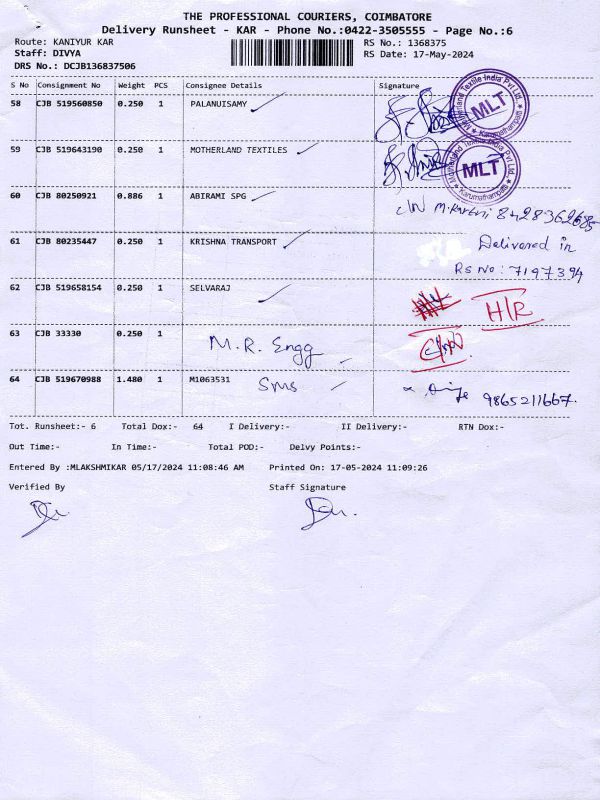 THE PROFESSIONAL COURIERS, COIMBATORE
Delivery Runsheet - KAR - Phone No.:0422-3505555 - Page No.:6
Route: KANIYUR KAR
RS No.: 1368375
Staff: DIVYA
RS Date: 17-May-2024
DRS No.: DCJB136837506
S No Consignment No Weight PCS Consignee Details Signature
58 CJB 519560850 0.250 1 PALANUISAMY
Motherland Textile India Pvt Ltd
MLT
Karumathampatti
59 CJB 519643190 0.250 1 MOTHERLAND TEXTILES
Motherland Textile India Pvt Ltd
MLT
Karumathampatti
60 CJB 80250921 0.886 1 ABIRAMI SPG
61 CJB 80235447 0.250 1 KRISHNA TRANSPORT Delivered in
RS No: 7197394
62 CJB 519658154 0.250 1 SELVARAJ H/R
63 CJB 33330 0.250 1 M.R. Engg
64 CJB 519670988 1.480 1 M1063531 Sms 9865211667.
Tot. Runsheet:- 6 Total Dox:- 64 I Delivery:- II Delivery:- RTN Dox:-
Out Time:- In Time:- Total POD:- Delvy Points:-
Entered By :MLAKSHMIKAR 05/17/2024 11:08:46 AM Printed On: 17-05-2024 11:09:26
Verified By Staff Signature